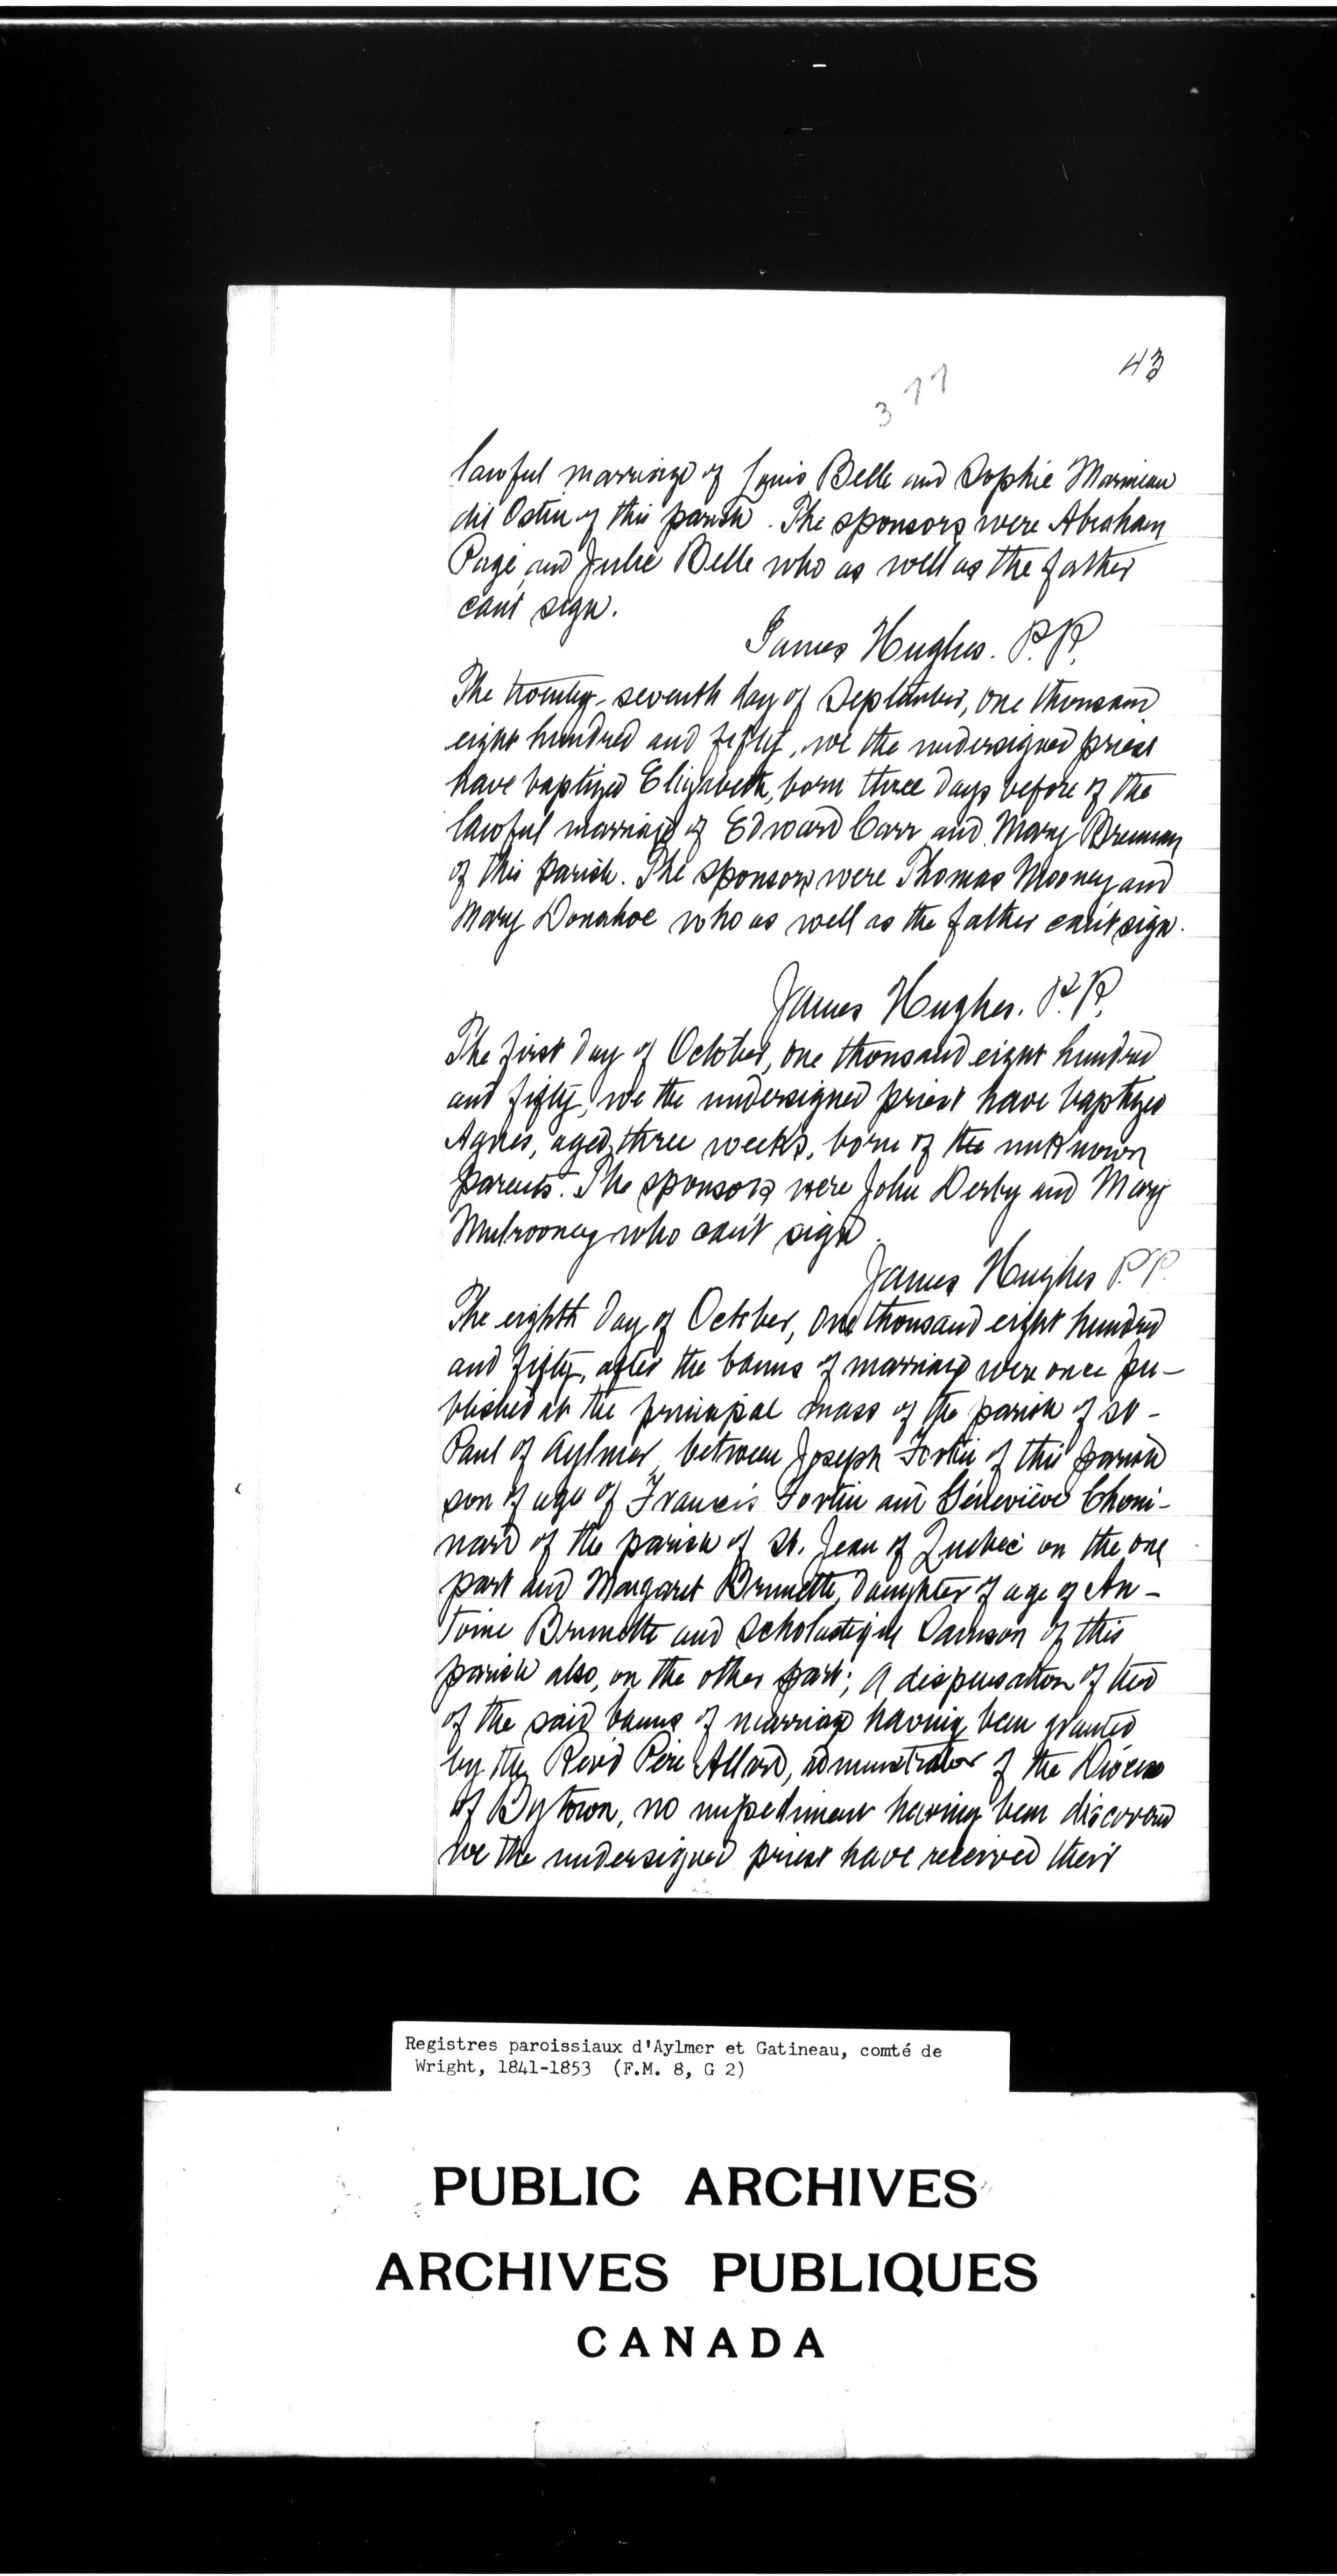 43
377
lawful marriage of Louis Belle and Sophie Marineau
dit Ostin of this parish. The sponsors were Abraham
Pagé and Julie Belle who as well as the father
can't sign.
James Hughes. P.P.
The twenty-seventh day of September, one thousand
eight hundred and fifty, we the undersigned priest
have baptized Elizabeth, born three days before of the
lawful marriage of Edward Carr and Mary Brennan
of this parish. The sponsors were Thomas Mooney and
Mary Donahoe who as well as the father can't sign.
James Hughes. P.P.
The first day of October, one thousand eight hundred
and fifty, we the undersigned priest have baptized
Agnes, aged three weeks, born of the unknown
parents. The sponsors were John Derby and Mary
Mulrooney who can't sign.
James Hughes P.P.
The eighth day of October, one thousand eight hundred
and fifty, after the banns of marriage were once pu-
blished at the principal mass of the parish of St-
Paul of Aylmer, between Joseph Fortin of this parish
son of age of Francis Fortin and Géneviève Choui-
nard of the parish of St. Jean of Quebec on the one
part and Margaret Brunette, daughter of age of An-
toine Brunette and Scholastique Samson of this
parish also, on the other part; A dispensation of two
of the said banns of marriage having been granted
by the Rev'd Père Allard, administrator of the Diocese
of Bytown, no impediment having been discovered
we the undersigned priest have received their
Registres paroissiaux d'Aylmer et Gatineau, comté de
Wright, 1841-1853 (F.M. 8, G 2)
PUBLIC ARCHIVES
ARCHIVES PUBLIQUES
CANADA